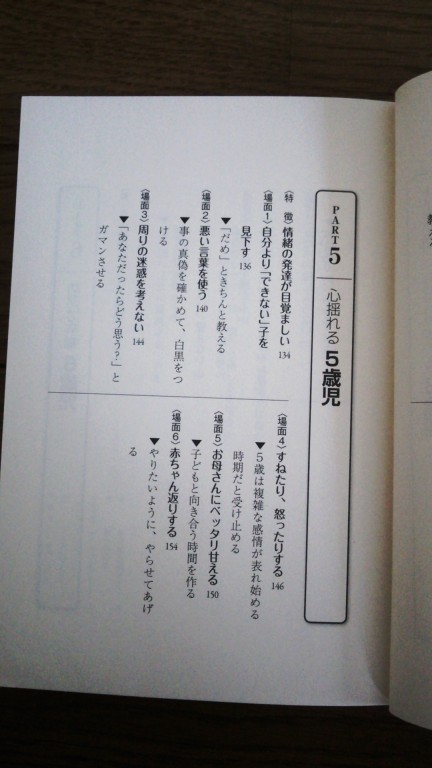 PART 5 心揺れる 5歳児
〈特 徴〉情緒の発達が目覚ましい 134
〈場面1〉自分より「できない」子を
見下す 136
▼「だめ」ときちんと教える
〈場面2〉悪い言葉を使う 140
▼事の真偽を確かめて、白黒をつ
ける
〈場面3〉周りの迷惑を考えない 144
▼「あなただったらどう思う?」と
ガマンさせる
〈場面4〉すねたり、怒ったりする 146
▼5歳は複雑な感情が表れ始める
時期だと受け止める
〈場面5〉お母さんにベッタリ甘える 150
▼子どもと向き合う時間を作る
〈場面6〉赤ちゃん返りする 154
▼やりたいように、やらせてあげ
る